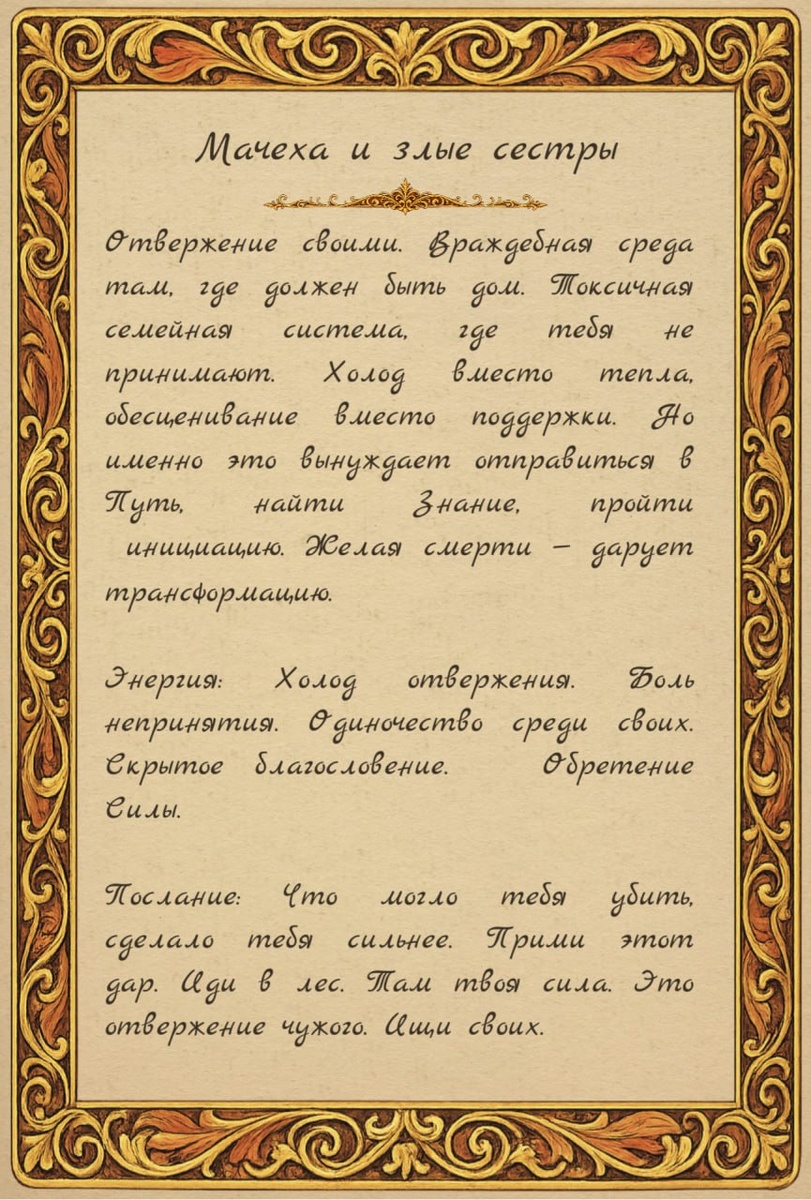 Мачеха и злые сестры
Отвержение своими. Враждебная среда
там, где должен быть дом. Токсичная
семейная система, где тебя не
принимают. Холод вместо тепла,
обесценивание вместо поддержки. Но
именно это вынуждает отправиться в
Путь, найти Знание, пройти
инициацию. Желая смерти — дарует
трансформацию.
Энергия: Холод отвержения. Боль
непринятия. Одиночество среди своих.
Скрытое благословение. Обретение
Силы.
Послание: Что могло тебя убить,
сделало тебя сильнее. Прими этот
дар. Иди в лес. Там твоя сила. Это
отвержение чужого. Ищи своих.